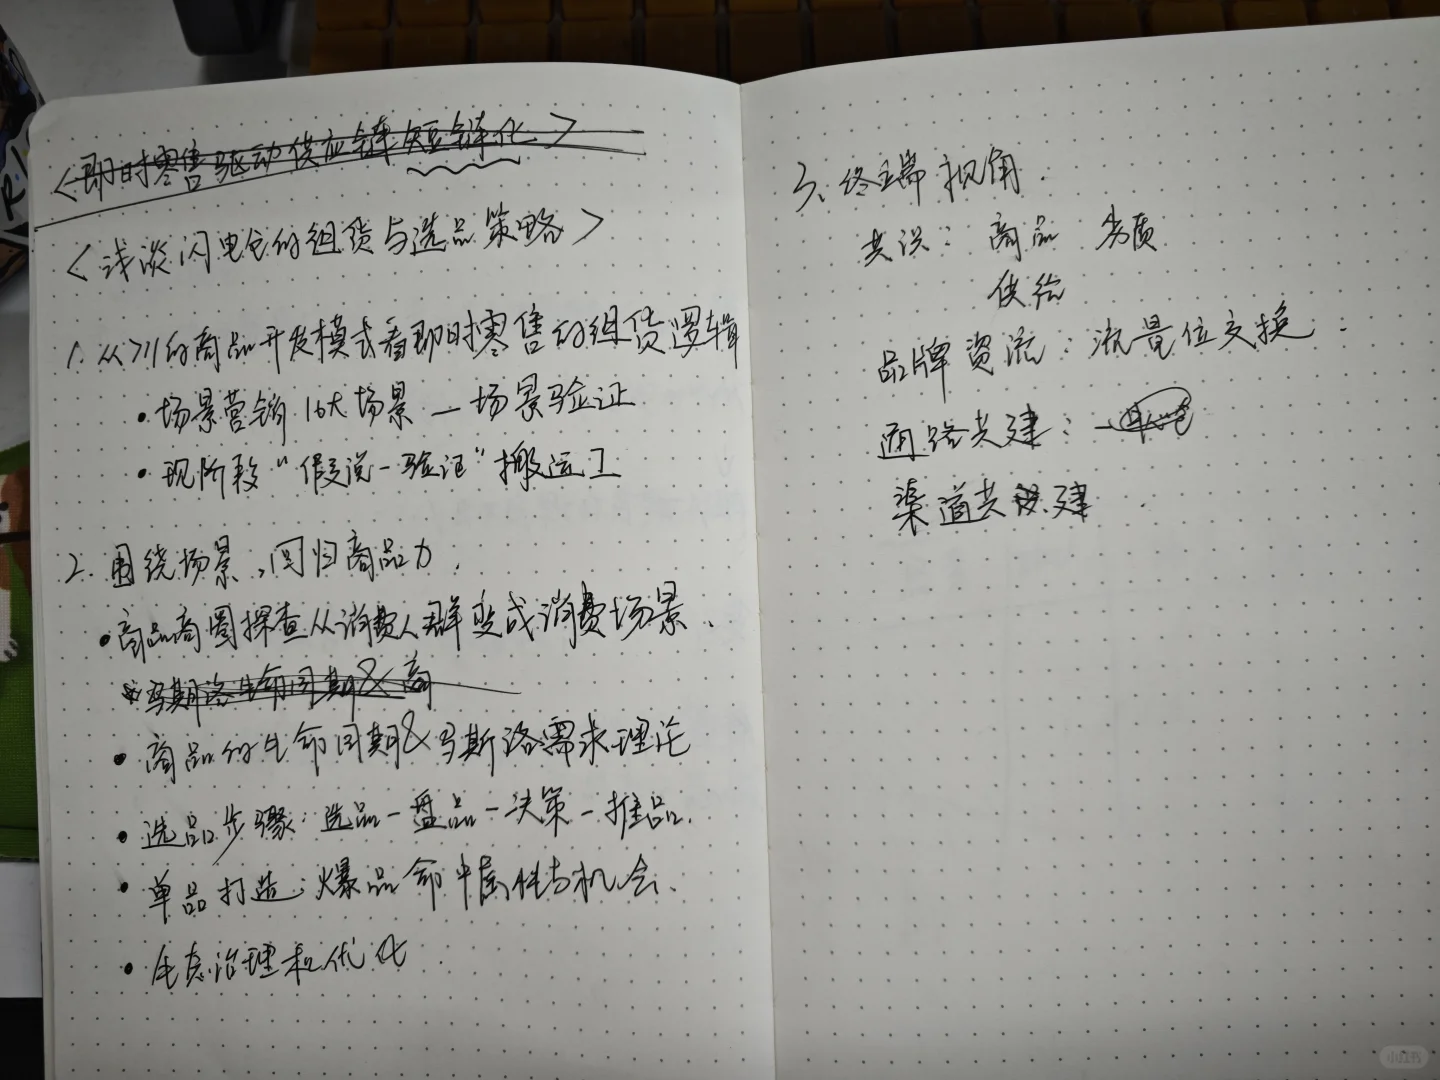 <即时零售驱动供应链短链化>
<浅谈闪电仓的组货与选品策略>
1. 从711的商品开发模式看即时零售的组货逻辑
• 场景营销 16大场景 — 场景验证
• 现阶段“假说-验证”搬运工
2. 围绕场景,回归商品力.
• 商品商圈探查从消费人群变成消费场景.
生命周期&商
• 商品的生命周期&马斯洛需求理论
• 选品步骤: 选品-盘品-决策-推品.
• 单品打造: 爆品命中属性与机会.
• 生态治理和优化
3. 终端视角.
共识: 商品 劣质
供给
品牌资流: 流量位交换.
通路共建:
渠道共建
小红书